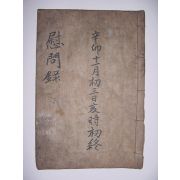 辛卯十一月初三日亥時初終
慰問錄